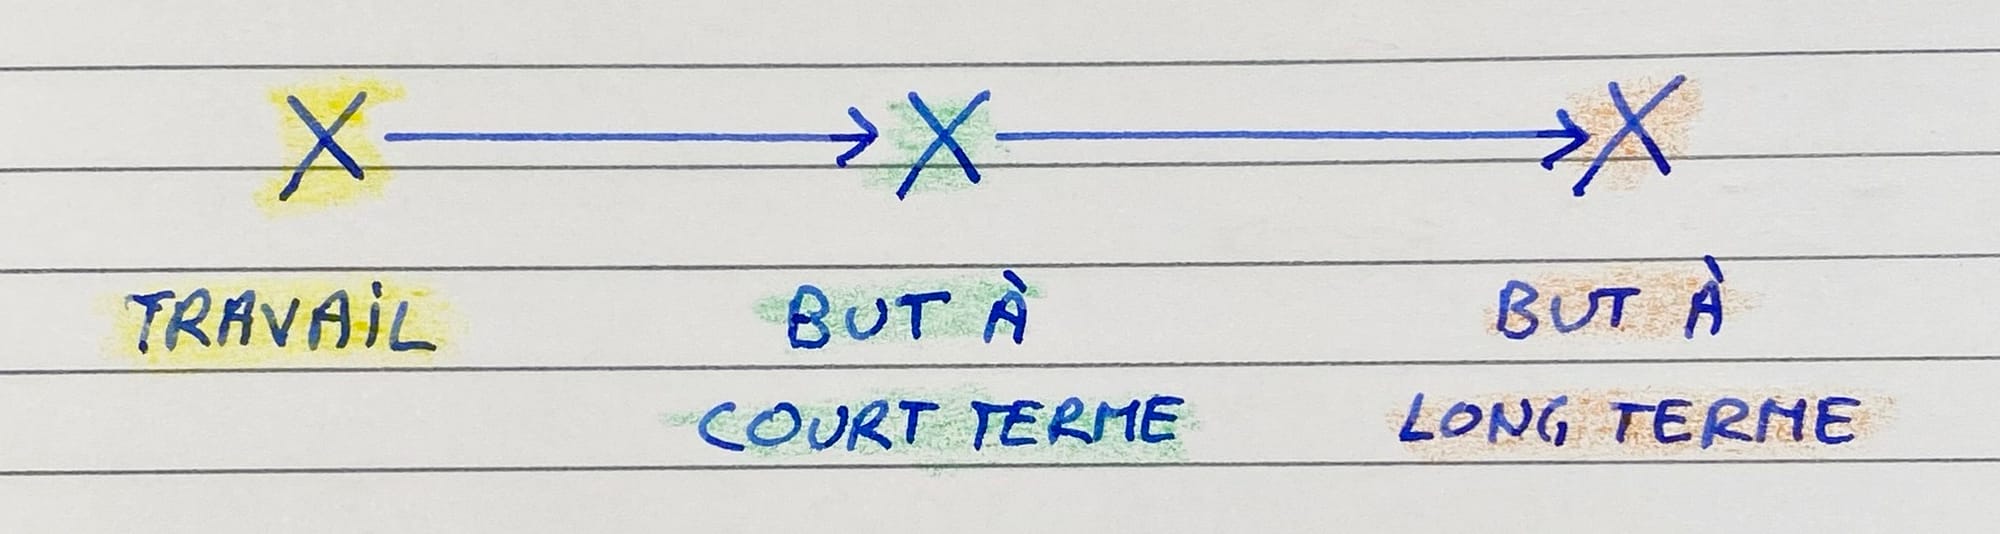 X X X
TRAVAiL BUT À BUT À
COURT TERME LONG TERME